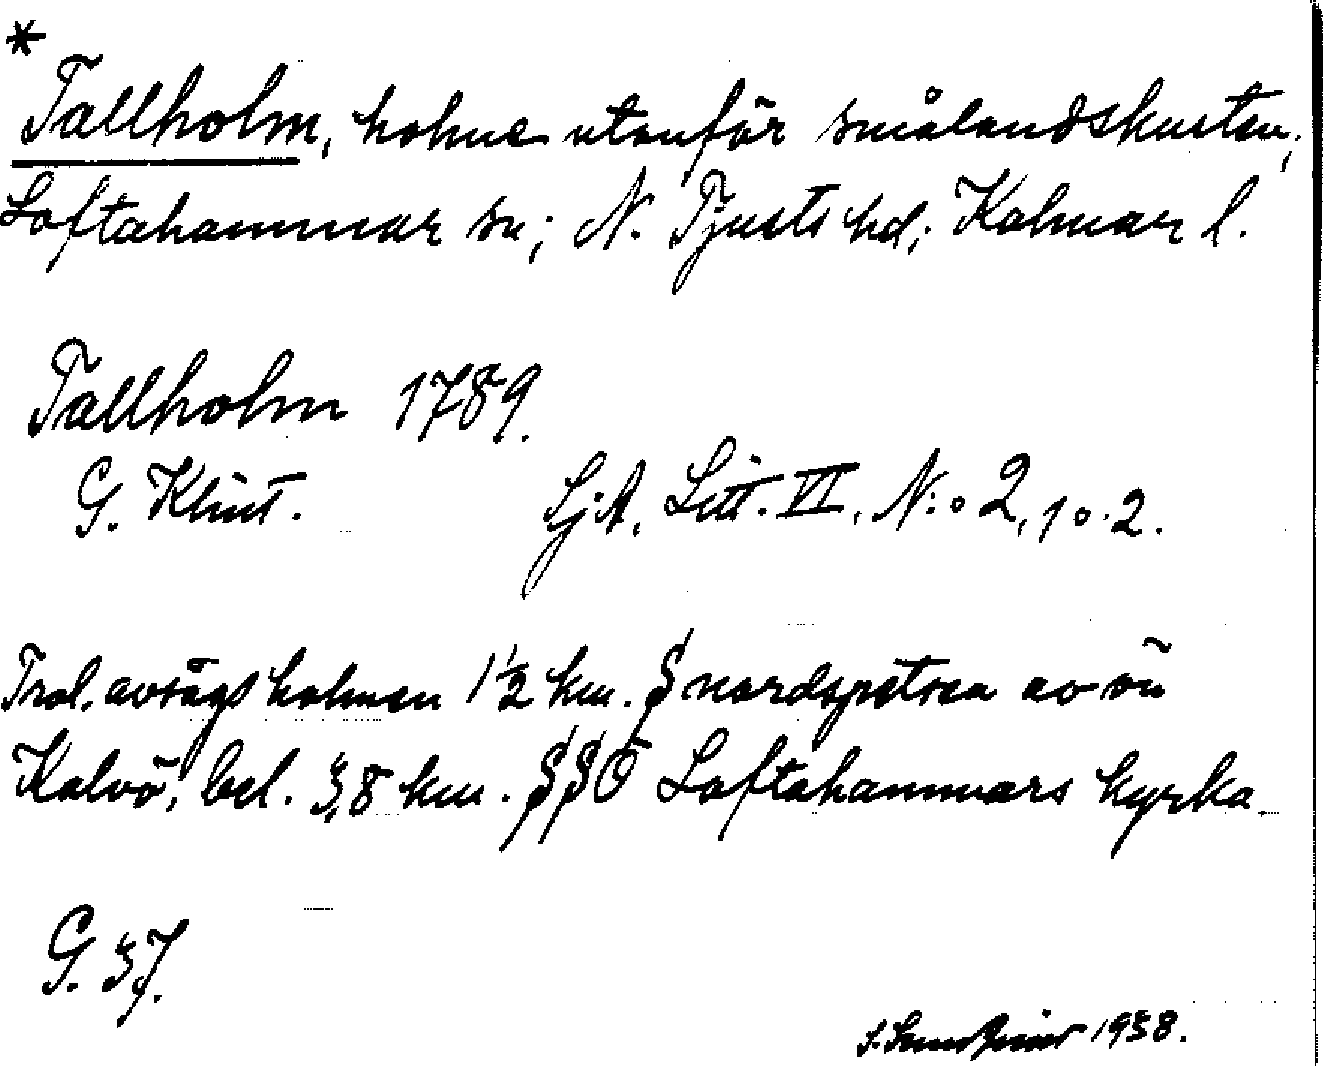 *
Tallholm, holme utanför smålandskusten;
Loftahammar sn; N. Tjusts hd; Kalmar l.
Tallholm 1789.
G. Klint. SjA, Litt. VI, N:o 2, 1 o. 2.
Trol. avsågs holmen 1½ km. S nordspetsen av ön
Kalvö, bel. 3,8 km. SSÖ Loftahammars kyrka.
G. 37.
1938.